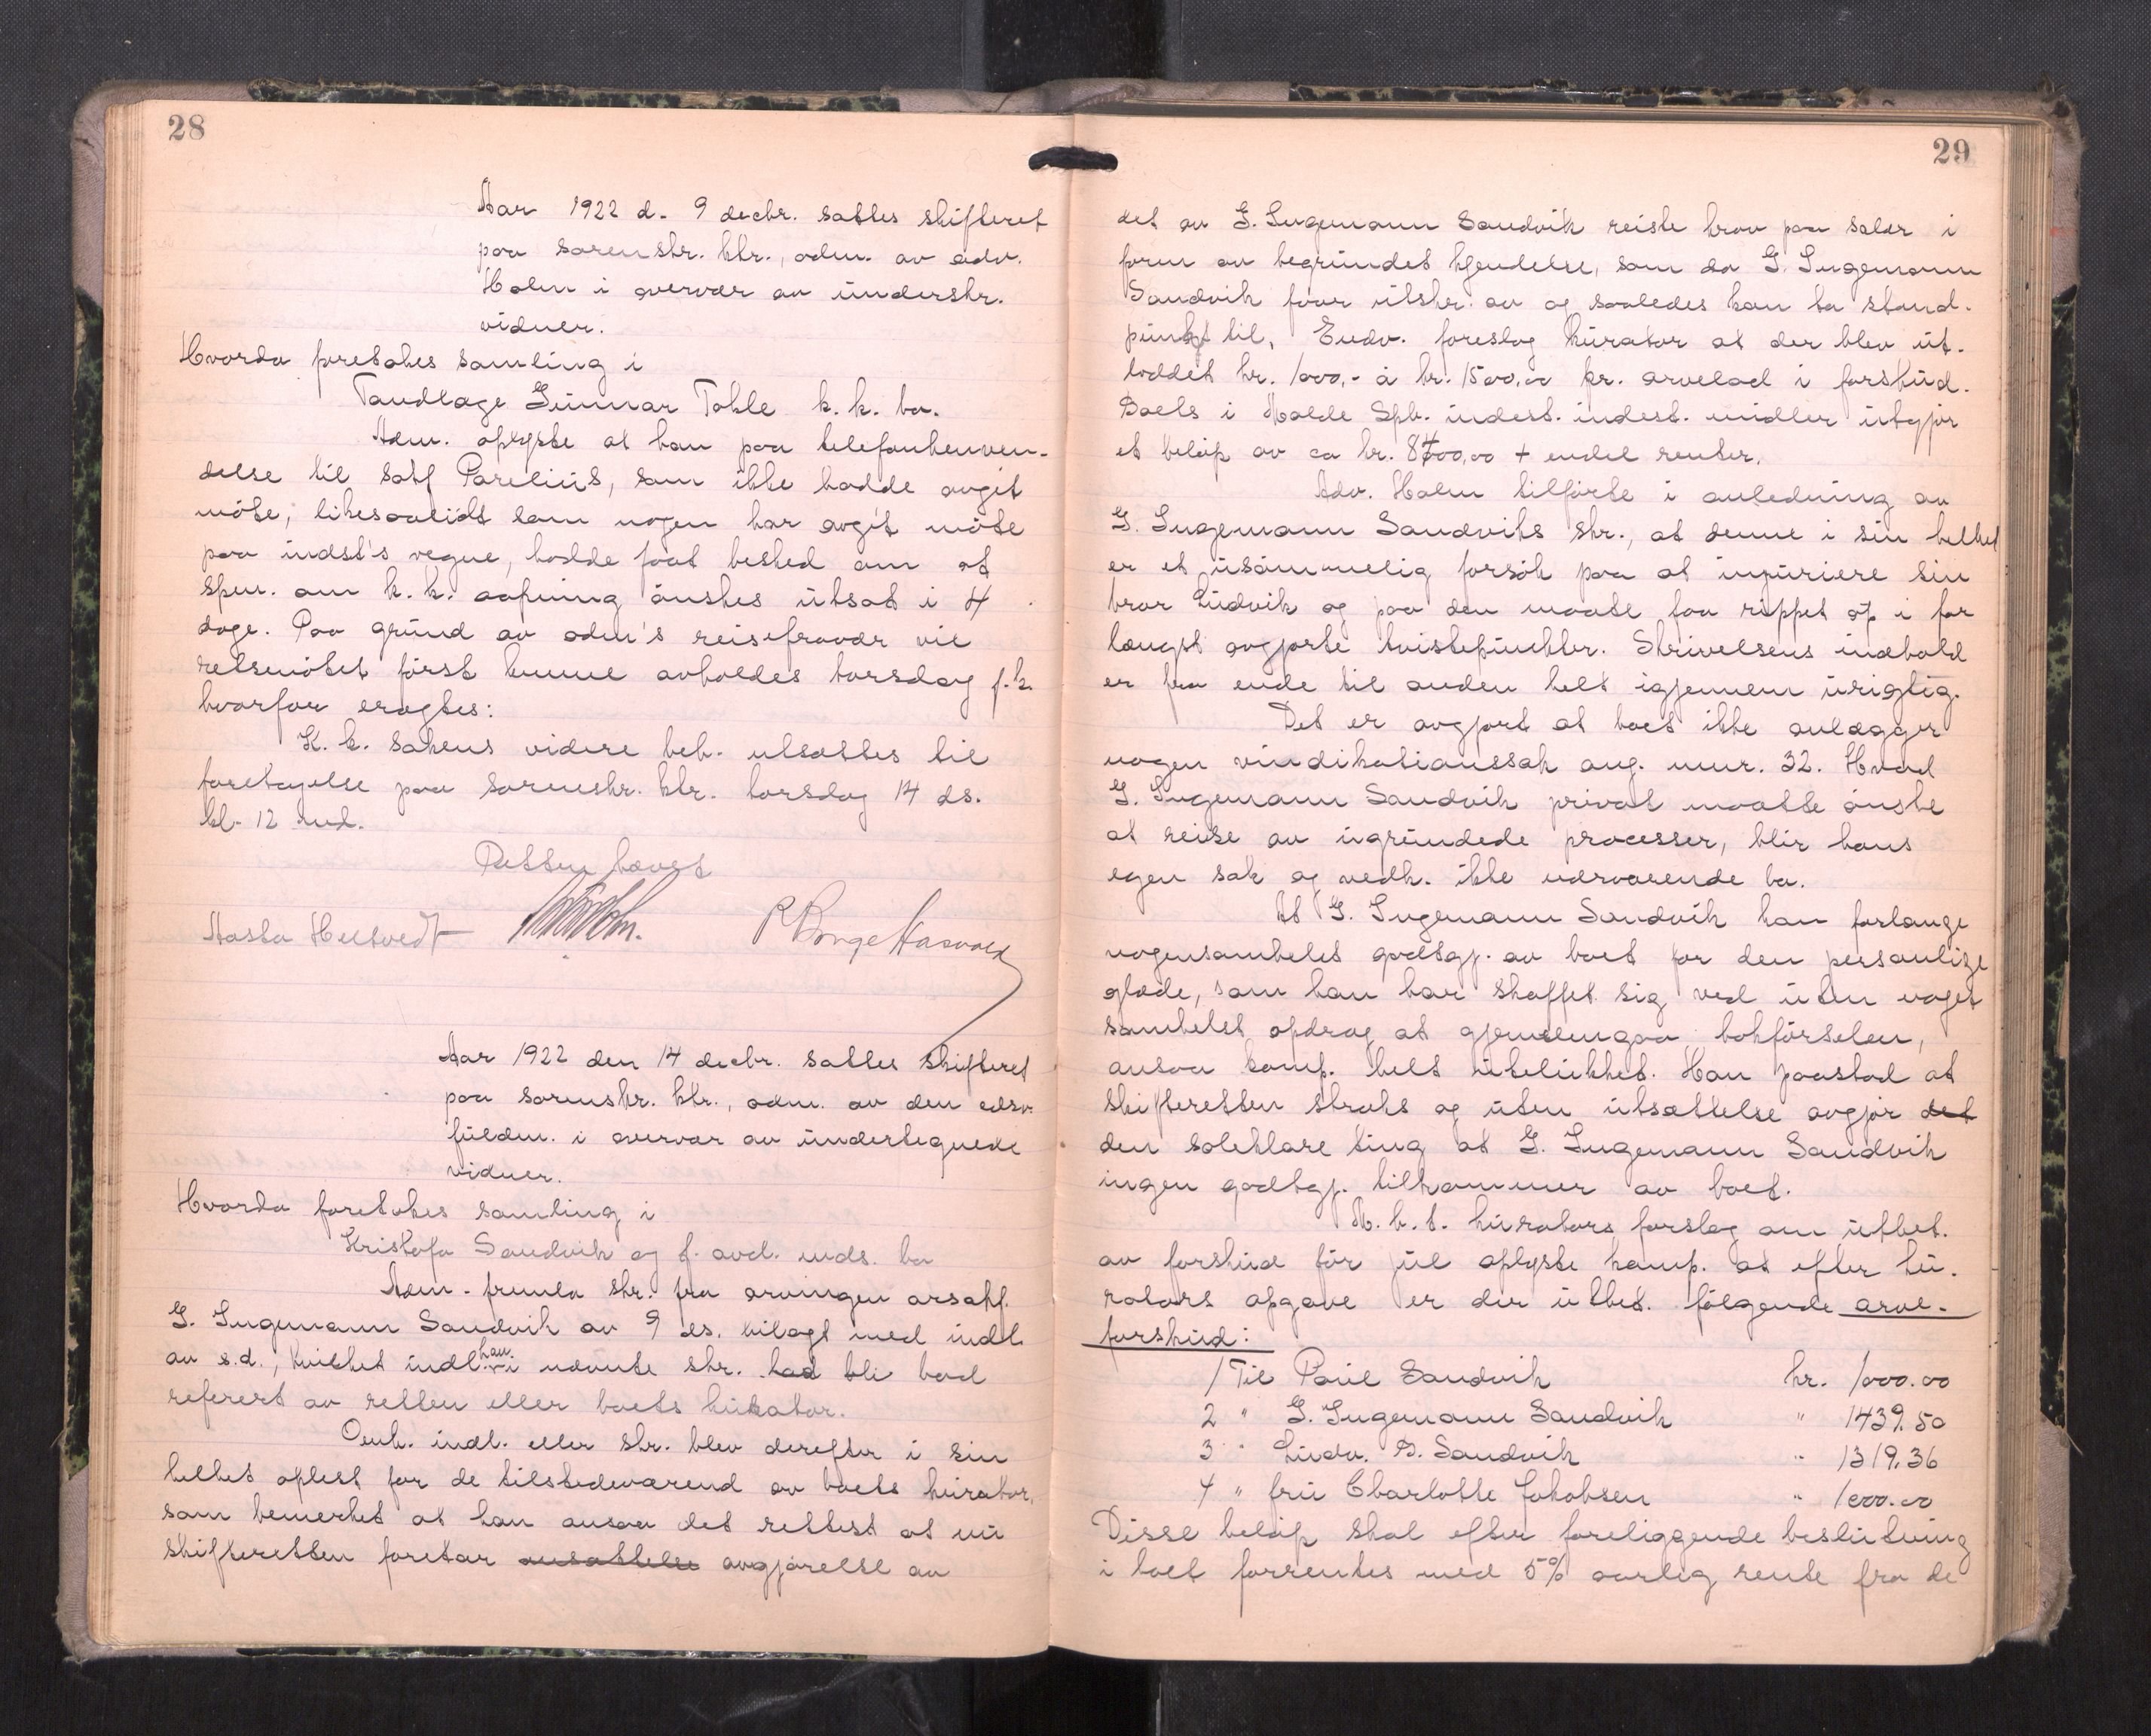 28
Aar 1922 d. 9 decbr. sattes skifteret
paa sorenskr. ktr., adm. av adv.
Holm i overvær av underskr.
vidner.
Hvorda foretokes samling i
Tandlæge Gunnar Tokle k.k. bo.
Adm. oplyste at han paa telefonhenven-
delse til sakf Parelius, som ikke hadde avgit
møte, likesaalidt som nogen har avgit møte
paa indst's vegne, hadde faat besked om at
spm. om k.k. aapning ønskes utsat i 4
dage. Paa grund av adm's reisefravær vil
retsmøtet først kunne avholdes torsdag f.k.
hvorfor eragtes:
K.k. sakens videre beh. utsættes til
foretagelse paa sorenskr. ktr. torsdag 14 ds.
kl. 12 md.
Retten hævet
Aasta Heltvedt
Aar 1922 den 14 decbr. sattes skifteret
paa sorenskr. ktr., adm. av den edsv.
fuldm. i overvær av undertegnede
vidner.
Hvorda foretokes samling i
Kristofa Sandvik og f. avd. mds. bo
Adm. fremla skr. fra arvingen orsakf.
G. Ingemann Sandvik av 9 ds. bilagt med indl.
av s.d., hvilket indl. han i nævnte skr. had bli bed
referert av retten eller boets kurator.
Omh. indl. eller skr. blev derefter i sin
helhet oplest for de tilstedeværend av boets kurator,
som bemerket at han ansaa det rettest at nu
skifteretten foretar ansættelse avgjørelse av
29
det av G. Ingemann Sandvik reiste krav paa salær i
form av begrundet kjendelse, som da G. Ingemann
Sandvik faar utskr. av og saaledes kan ta stand-
punkt til. Endv. foreslog kurator at der blev ut-
loddet kr. 1000,- à kr. 1500,00 pr. arvelod i forskud.
Boets i Molde Spb. indest. indest. midler utgjør
et beløp av ca kr. 8700,00 + endel renter.
Adv. Holm tilførte i anledning av
G. Ingemann Sandviks skr., at denne i sin helhet
er et usømmelig forsøk paa at injuriere sin
bror Ludvik og paa den maate faa rippet op i for
længst avgjorte tvistepunkter. Skrivelsens indhold
er fra ende til anden helt igjennem urigtig.
Det er avgjort at boet ikke anlægger
nogen vindikationssak ang. mnr. 32. Hvad
G. Ingemann Sandvik privat maatte ønske
at reise av ugrundede processer, blir hans
egen sak og vedk. ikke nærværende bo.
At G. Ingemann Sandvik kan forlange
nogensomhelst godtgj. av boet for den personlige
glæde, som han har skaffet sig ved uten noget
somhelst opdrag at gjennemgaa bokførselen,
ansaa komp. helt utelukket. Han paastod at
skifteretten straks og uten utsættelse avgjør det
den soleklare ting at G. Ingemann Sandvik
ingen godtgj. tilkommer av boet.
M.h.t. kurators forslag om utbet.
av forskud før jul oplyste komp. at efter ku-
rators opgave er der utbet. følgende arve-
forskud:
1 Til Paul Sandvik kr. 1000.00
2 " G. Ingemann Sandvik " 1439.50
3 " Ludv. B. Sandvik " 1319.36
4 " fru Charlotte Jakobsen " 1000.00
Disse beløp skal efter foreliggende beslutning
i boet forrentes med 5% aarlig rente fra de